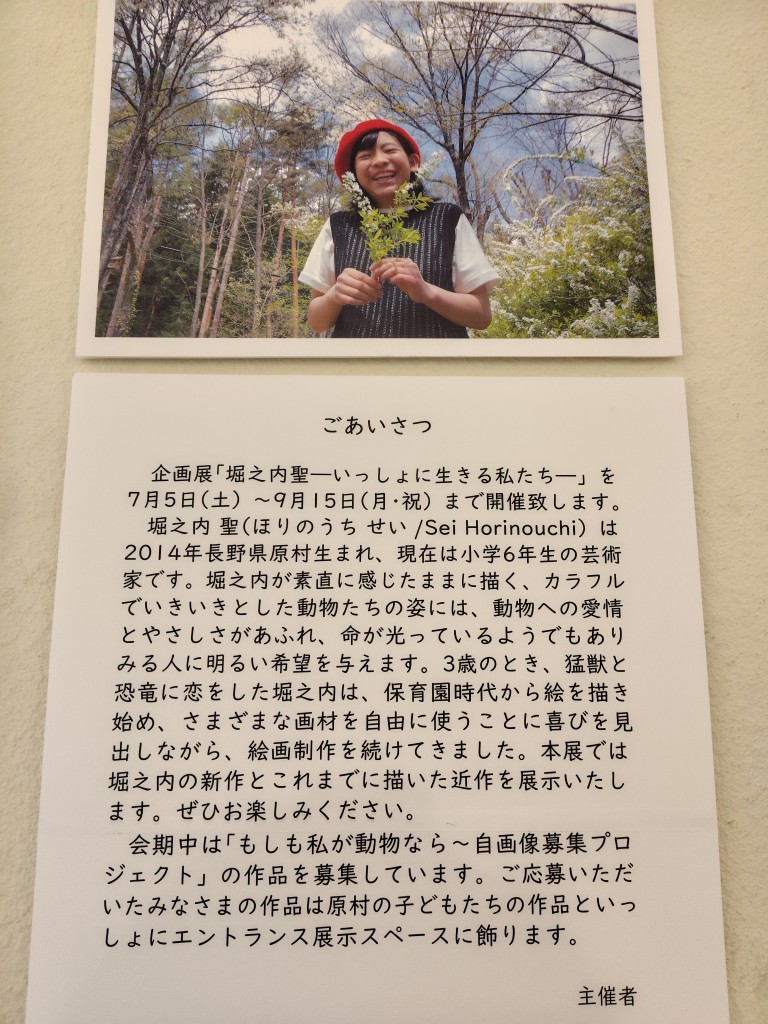 ごあいさつ
企画展「堀之内聖―いっしょに生きる私たち―」を
7月5日(土) ～9月15日(月・祝) まで開催致します。
堀之内 聖(ほりのうち せい /Sei Horinouchi) は
2014年長野県原村生まれ、現在は小学6年生の芸術
家です。堀之内が素直に感じたままに描く、カラフル
でいきいきとした動物たちの姿には、動物への愛情
とやさしさがあふれ、命が光っているようでもあり
みる人に明るい希望を与えます。3歳のとき、猛獣と
恐竜に恋をした堀之内は、保育園時代から絵を描き
始め、さまざまな画材を自由に使うことに喜びを見
出しながら、絵画制作を続けてきました。本展では
堀之内の新作とこれまでに描いた近作を展示いたし
ます。ぜひお楽しみください。
会期中は「もしも私が動物なら～自画像募集プロ
ジェクト」の作品を募集しています。ご応募いただ
いたみなさまの作品は原村の子どもたちの作品といっ
しょにエントランス展示スペースに飾ります。
主催者